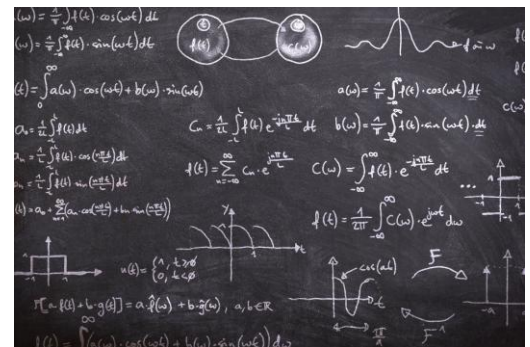 a(ω) = 1/π ∫_{-∞}^{∞} f(t)·cos(ωt) dt
(ω) = 1/π ∫_{-∞}^{∞} f(t)·sin(ωt) dt
f(t) C(ω)
(t) = ∫_0^∞ a(ω)·cos(ωt) + b(ω)·sin(ωt)
a(ω) = 1/π ∫_{-∞}^{∞} f(t)·cos(ωt) dt
a₀ = 1/2L ∫_{-L}^{L} f(t) dt
Cₙ = 1/2L ∫_{-L}^{L} f(t) e^{-jnπt/L} dt
b(ω) = 1/π ∫_{-∞}^{∞} f(t)·sin(ωt) dt
1/L ∫_{-L}^{L} f(t)·cos(nπt/L) dt
1/L ∫_{-L}^{L} f(t) sin(nπt/L) dt
f(t) = ∑_{n=-∞}^{∞} Cₙ·e^{jnπt/L}
C(ω) = ∫_{-∞}^{∞} f(t)·e^{-jnπt/L} dt
(t) = a₀ + ∑_{n=1}^{∞} (aₙ cos(nπt/L) + bₙ sin(nπt/L))
f(t) = 1/2π ∫_{-∞}^{∞} C(ω)·e^{jωt} dω
y
t
-1 1
u(t) = {1, t≥0
{0, t<0
cos(at)
t
F
F⁻¹
a·f(t) + b·g(t)] = a·f̂(ω) + b·ĝ(ω), a,b∈ℝ
f(t) = ∫^∞ (a(ω)·cos(ωt) + b(ω)·sin(ωt)) dω